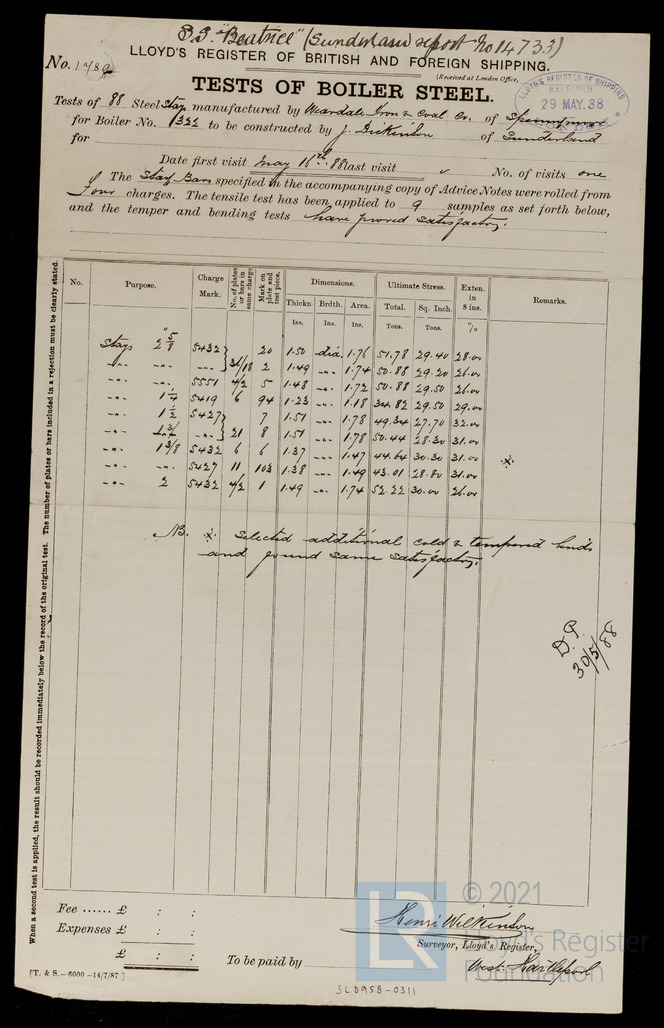 S.S. "Beatrice" (Sunderland report No 14733)
LLOYD'S REGISTER OF BRITISH AND FOREIGN SHIPPING.
No. 1789
(Received at London Office,
LLOYD'S REGISTER OF SHIPPING
RECEIVED
29 MAY.88
TESTS OF BOILER STEEL.
Tests of 88 Steel Stay manufactured by Weardale Iron & Coal Co. of Spennymoor
for Boiler No. 1322 to be constructed by J. Dickinson of Sunderland
for
Date first visit May 16th 88 last visit " No. of visits one
The Stay Bars specified in the accompanying copy of Advice Notes were rolled from
four charges. The tensile test has been applied to 9 samples as set forth below,
and the temper and bending tests have proved satisfactory.
No. Purpose. Charge Mark. No. of plates or bars in same charge. Mark on plate and test piece. Dimensions. Ultimate Stress. Exten. in 8 ins. Remarks.
Thickn. Brdth. Area. Total. Sq. Inch.
Ins. Ins. Ins. Tons. Tons. %
Stays 2 5/8" 5432 20 1.50 dia. 1.76 51.78 29.40 28.00
-"- -"- -"- } 36/18 2 1.49 -"- 1.74 50.88 29.20 26.00
-"- -"- 5551 4/2 5 1.48 -"- 1.72 50.88 29.50 26.00
-"- 1 1/4 5419 6 94 1.23 -"- 1.18 34.82 29.50 29.00
-"- 1 1/2 5427 7 1.51 -"- 1.78 49.34 27.70 32.00
-"- -"- } 21 8 1.51 -"- 1.78 50.44 28.30 31.00
-"- 1 3/8 5432 6 6 1.37 -"- 1.47 44.64 30.30 31.00 *
-"- -"- 5427 11 103 1.38 -"- 1.49 43.01 28.80 31.00
-"- 2 5432 4/2 1 1.49 -"- 1.74 52.22 30.00 26.00
NB. * Selected additional cold & tempered bends
and found same satisfactory.
D.P.
30/5/88
When a second test is applied, the result should be recorded immediately below the record of the original test. The number of plates or bars included in a rejection must be clearly stated.
Fee ...... £ : :
Expenses £ : :
£ : :
To be paid by
Henri Wilkinson
Surveyor, Lloyd's Register,
West Hartlepool
[T. & S.—6000 -14/7/87]
SLD958-0311
LR
© 2021
Lloyd's Register
Foundation